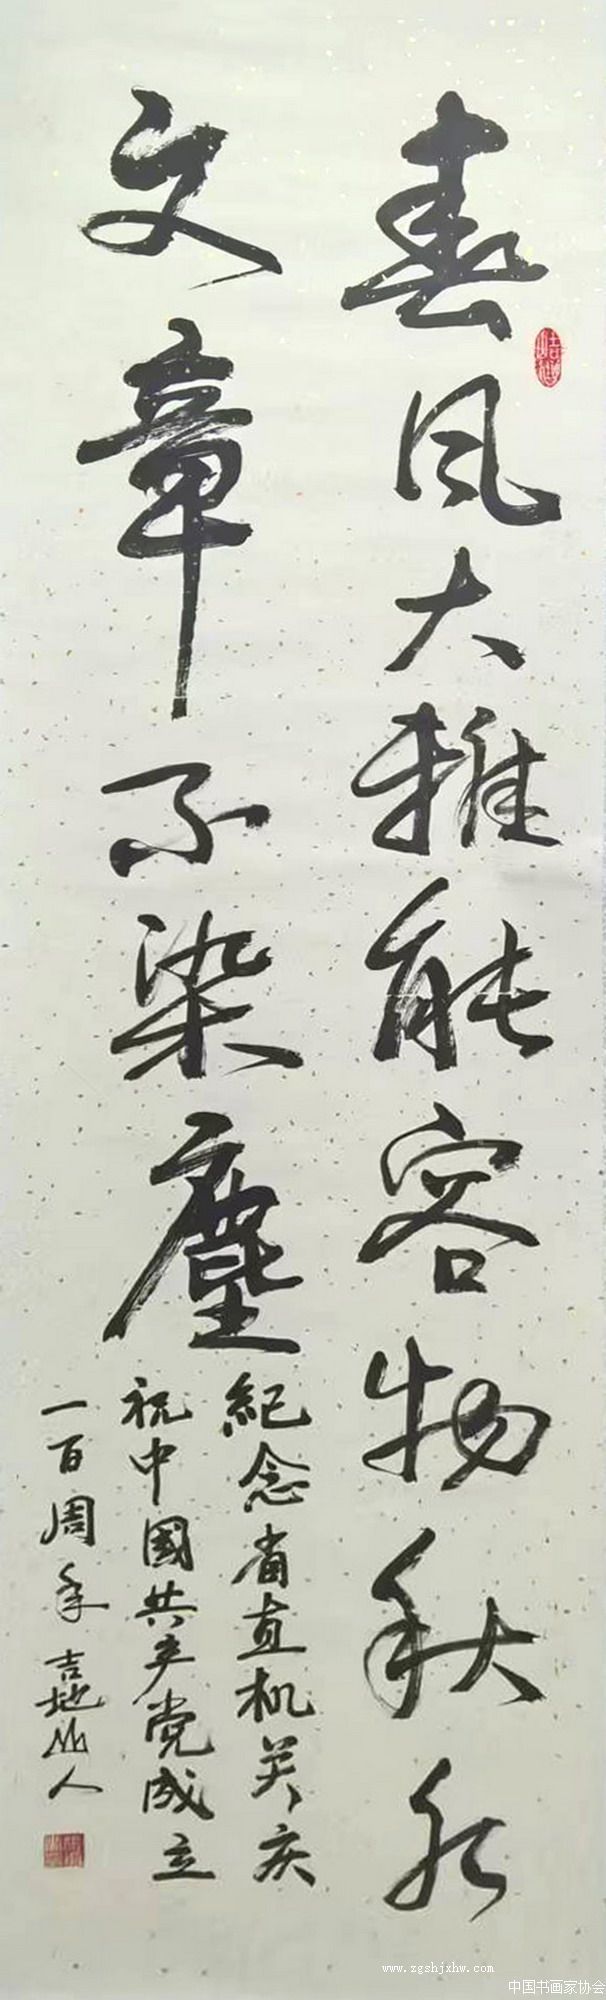 春风大雅能容物秋水
文章不染塵
紀念省直机关庆
祝中國共产党成立
一百周年 吉地山人
www.zgshjxhw.com
中国书画家协会